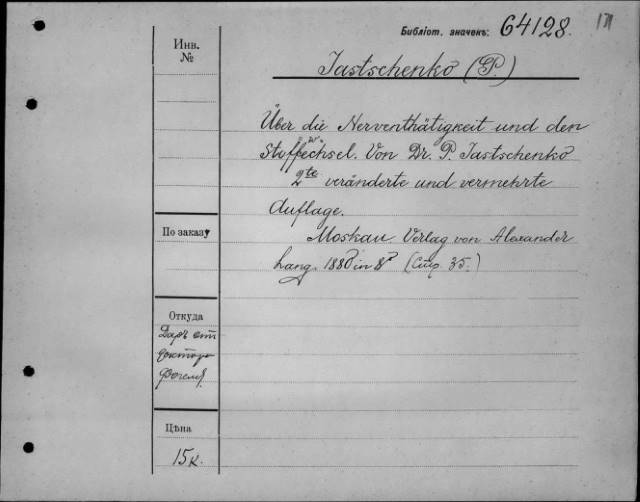 Библіот. значекъ: 64128. 171
Инв.
№
Jastschenko (P.)
Über die Nerventhätigkeit und den
w
Stoffechsel. Von Dr. P. Jastschenko
2te veränderte und vermehrte
Auflage.
По заказу
Moskau. Verlag von Alexander
Lang. 1880 in 8° (Стр. 35.)
Откуда
Даръ отъ
доктора
Цѣна
15 к.